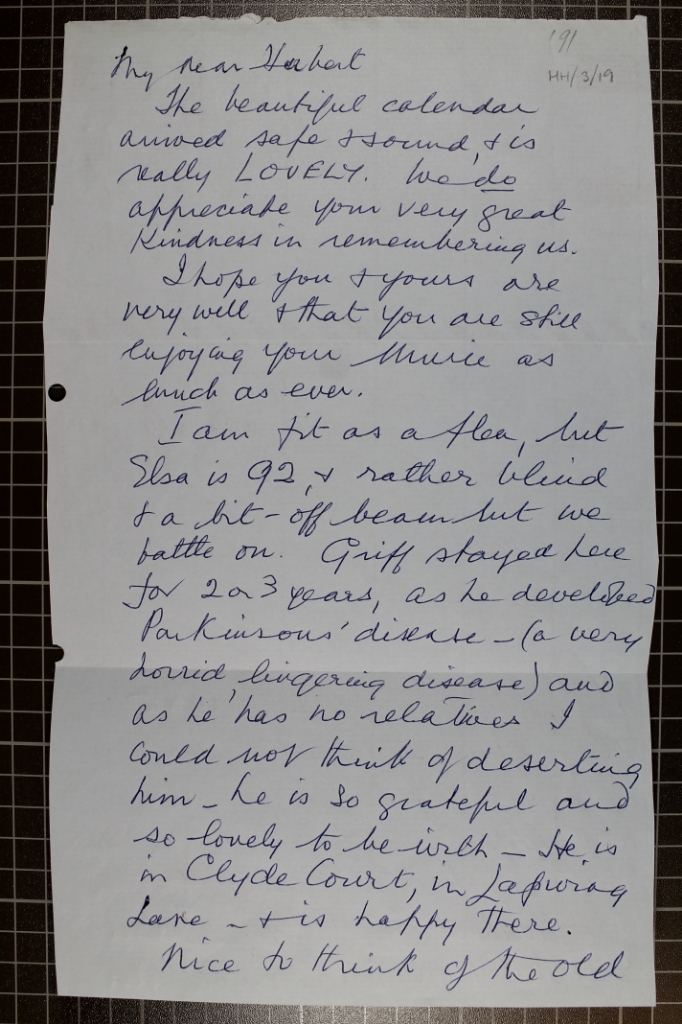 191
HH/3/19
My dear Herbert
The beautiful calendar
arrived safe & sound, & is
really LOVELY. We do
appreciate your very great
Kindness in remembering us.
I hope you & yours are
very well & that you are still
enjoying your Music as
much as ever.
I am fit as a flea, but
Elsa is 92, & rather blind
& a bit-off beam but we
battle on. Griff stayed here
for 2 or 3 years, as he developed
Parkinsons' disease - (a very
horrid, lingering disease) and
as he has no relatives I
could not think of deserting
him - he is so grateful and
so lovely to be with - He is
in Clyde Court, in
Lane - & is happy there.
Nice to think of the old